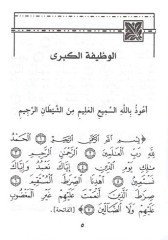 الوظيفة الكبرى
أعوذ بالله السميع العليم من الشيطان الرجيم
﴿بِسْمِ اللَّهِ الرَّحْمَٰنِ الرَّحِيمِ ۝ الْحَمْدُ
لِلَّهِ رَبِّ الْعَالَمِينَ ۝ الرَّحْمَٰنِ الرَّحِيمِ ۝
مَالِكِ يَوْمِ الدِّينِ ۝ إِيَّاكَ نَعْبُدُ وَإِيَّاكَ
نَسْتَعِينُ ۝ اهْدِنَا الصِّرَاطَ الْمُسْتَقِيمَ
۝ صِرَاطَ الَّذِينَ أَنْعَمْتَ عَلَيْهِمْ غَيْرِ الْمَغْضُوبِ
عَلَيْهِمْ وَلَا الضَّالِّينَ ۝﴾ [الفاتحة].
٥